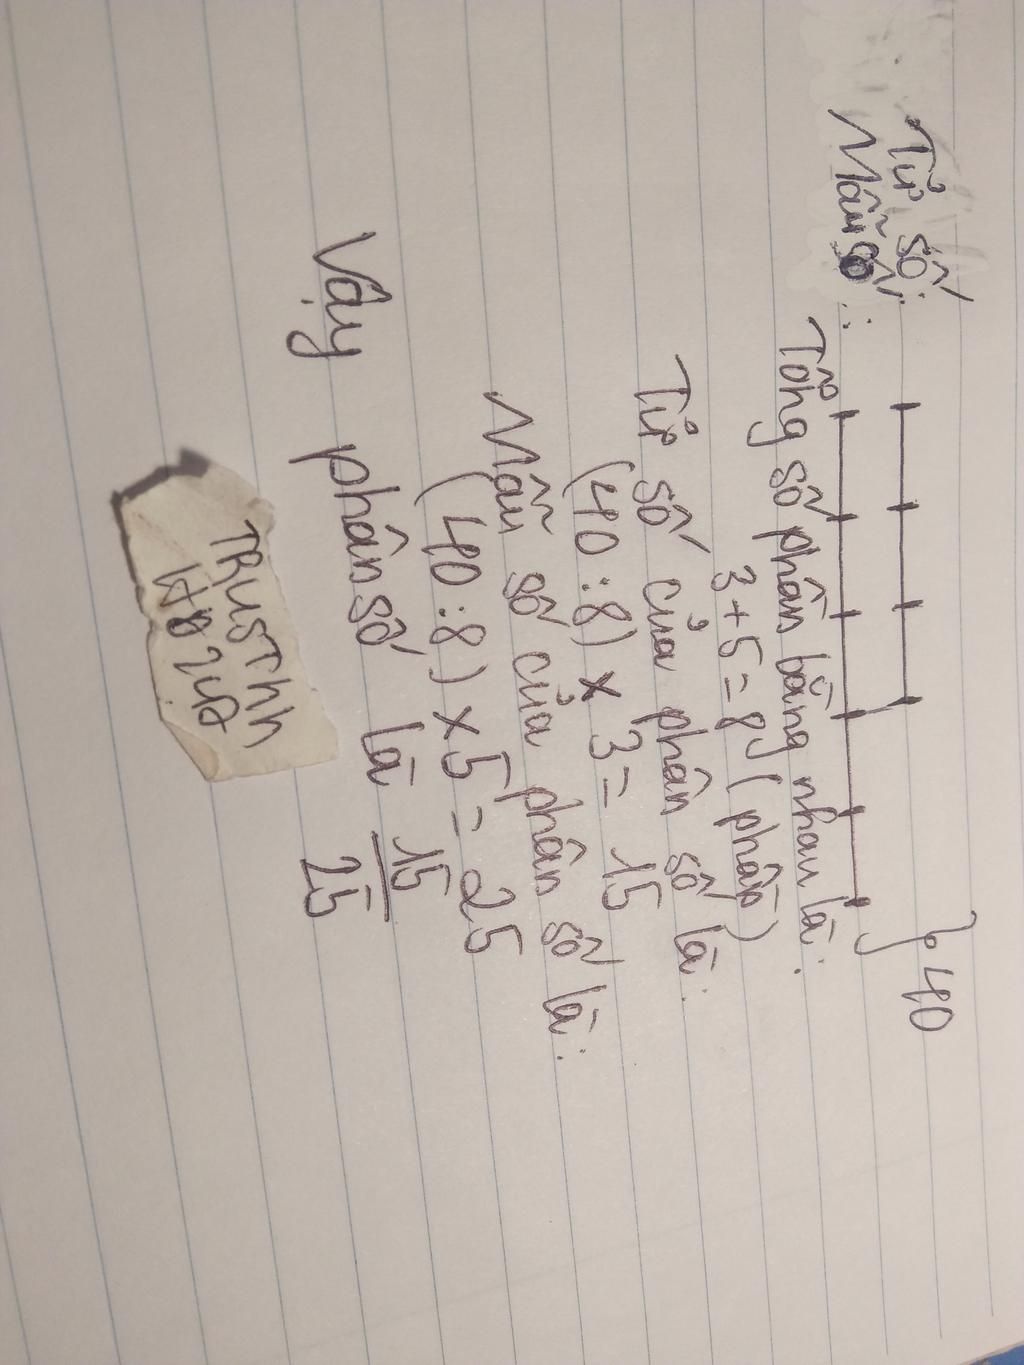 Tử số:
Mẫu số:
} 40
Tổng số phần bằng nhau là:
3+5=8 (phần)
Tử số của phân số là:
(40:8) x 3 = 15
Mẫu số của phân số là:
(40:8) x 5 = 25
Vậy phân số là 15/25
TRUSTHH
HĐ247